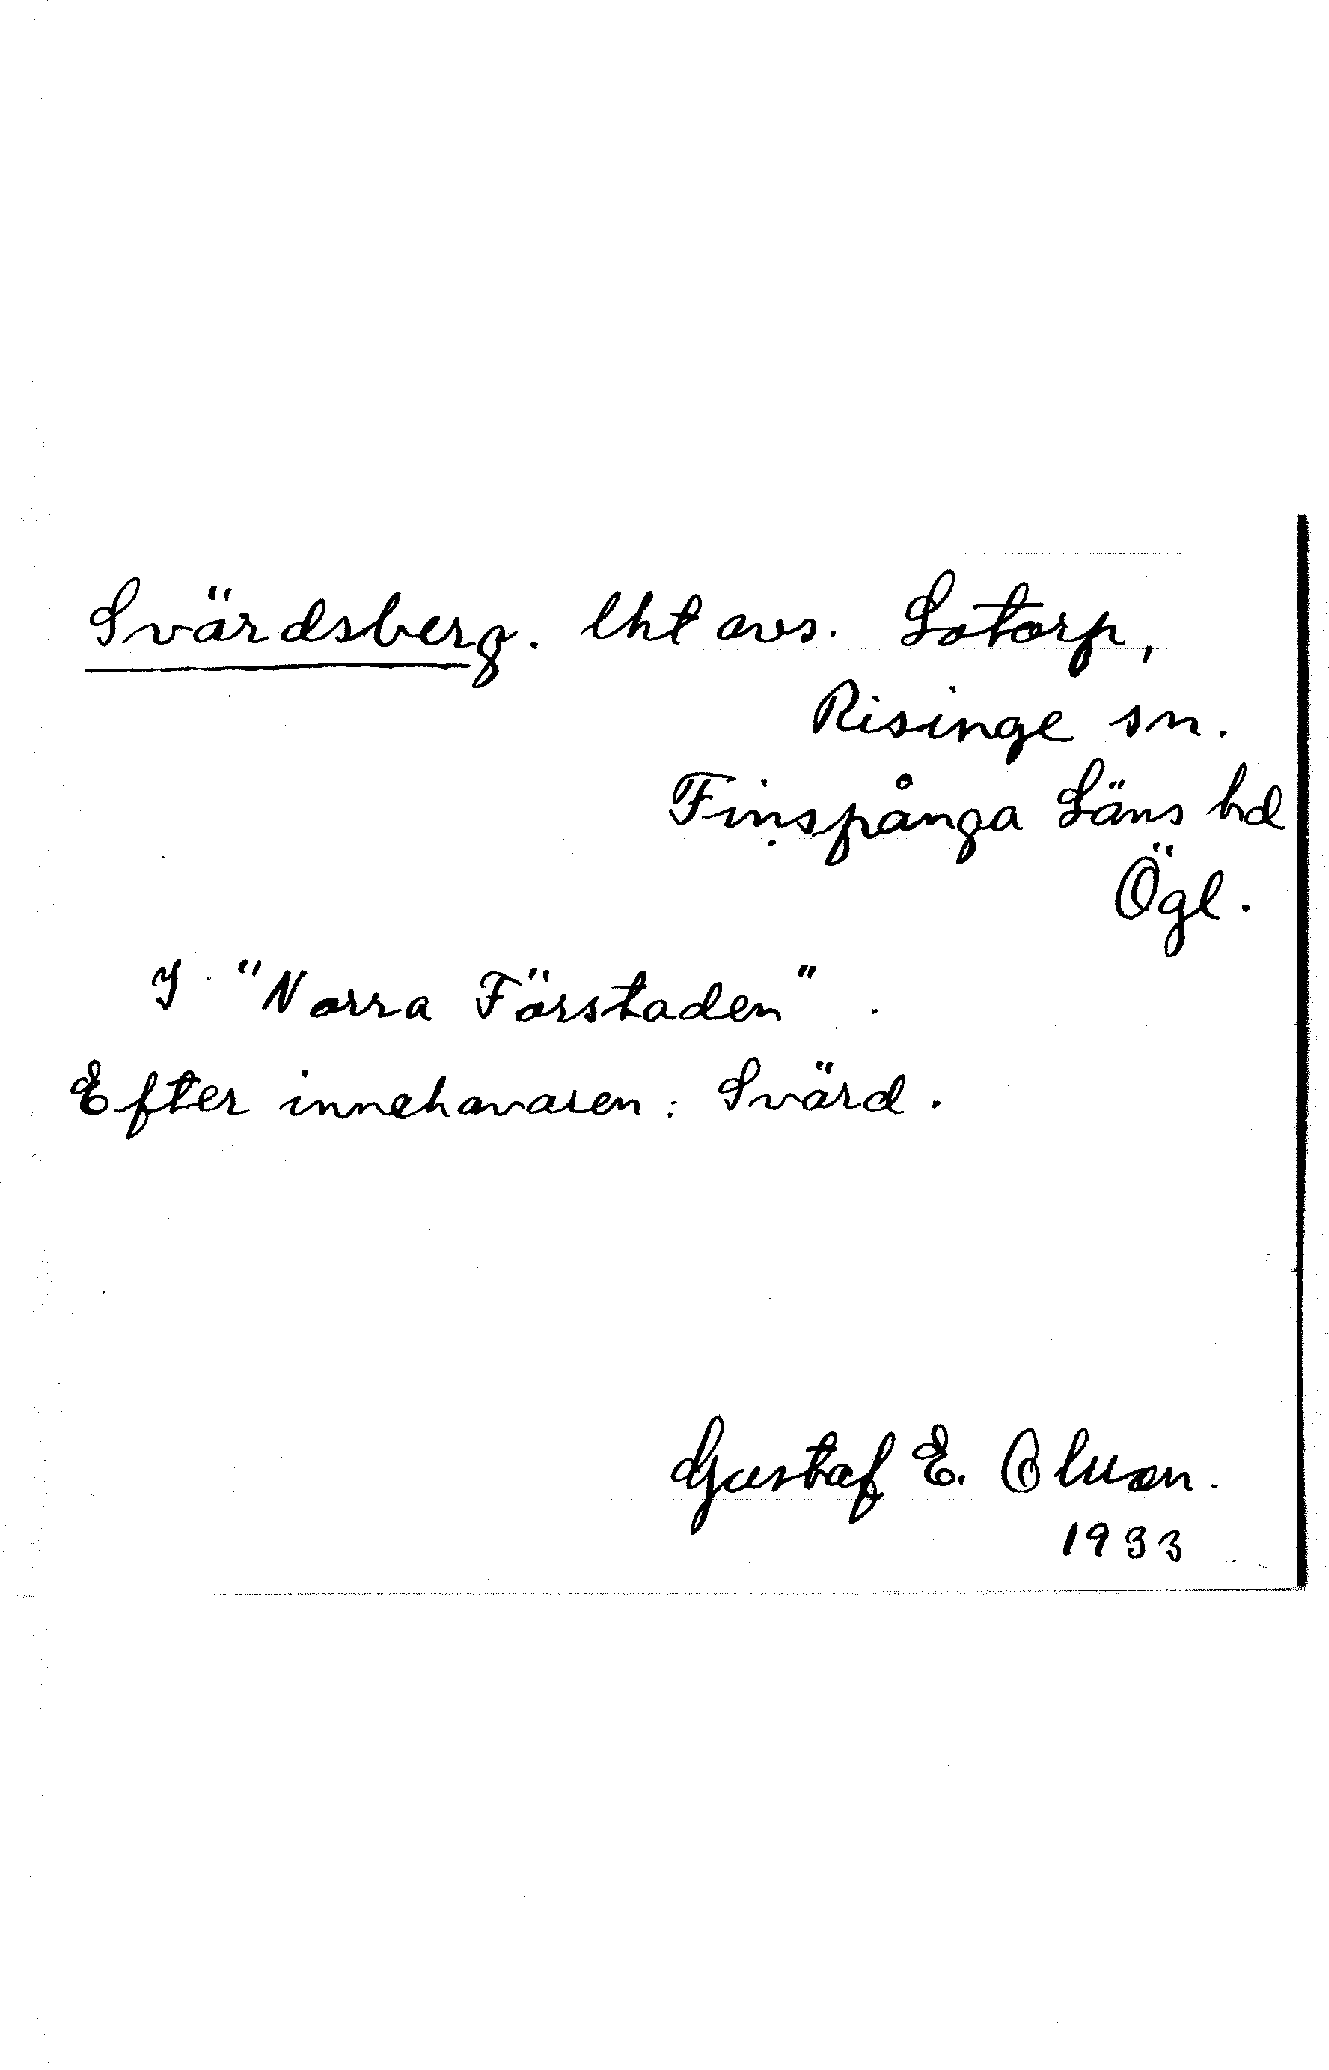 Svärdsberg. lht avs. Lotorp,
Risinge sn.
Finspånga Läns hd
Ögl.
I "Norra Förstaden".
Efter innehavaren: Svärd.
Gustaf E. Olsson.
1933